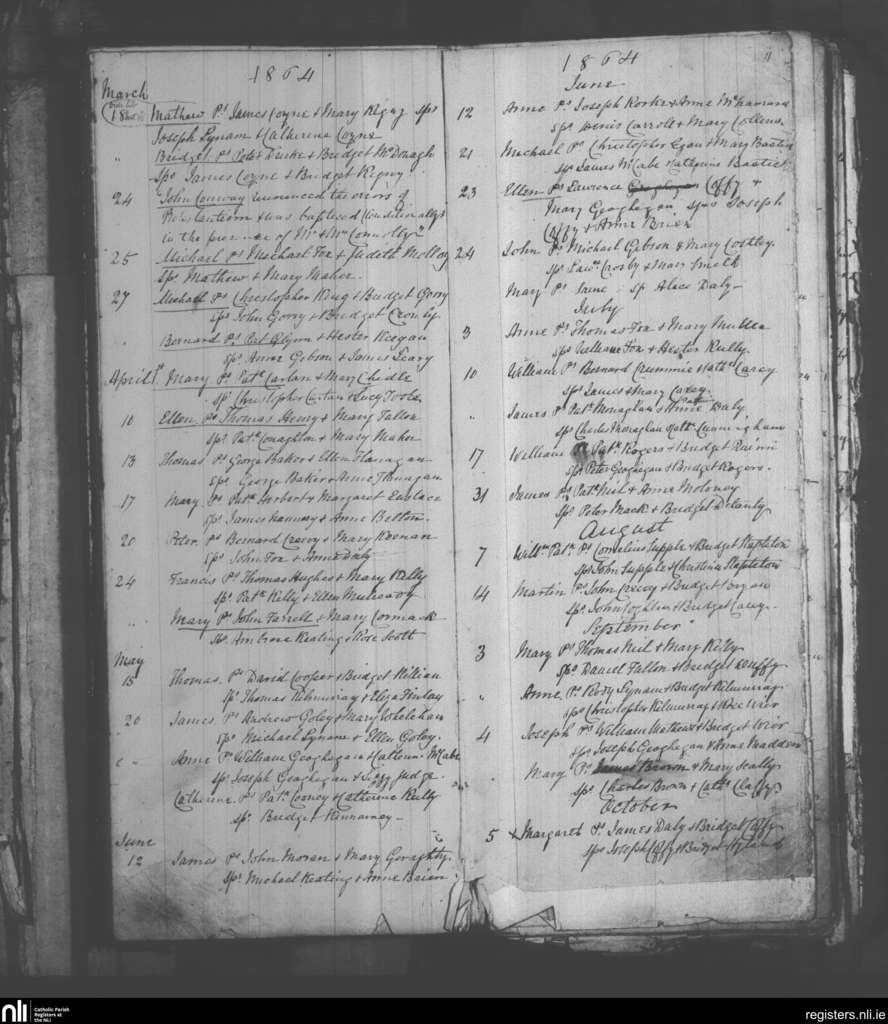 1864
March
18 Mathew Ps James Coyne & Mary Rigny Sps
Joseph Lynam & Catherine Coyne
" Bridget Ps Peter & Bridget McDonagh
Sps James Coyne & Bridget Rigny
24 John Conway renounced the errors of
Protestantism & was baptised Conditionally
in the presence of Mr & Mrs Connolly
25 Michael Ps Michael Fox & Judith Molloy
Sps Mathew & Mary Maher
27 Michael Ps Christopher King & Bridget Gorry
Sps John Gorry & Bridget Cronly
" Bernard Ps Pat Glynn & Hester Keegan
Sps Anne Gibson & James Leary
April 1st Mary Ps Patk Carlan & Mary
Sps Christopher Carlan & Lucy Toole
10 Ellen Ps Thomas Henry & Mary Fallon
Sps Patk Conaghton & Mary Maher
13 Thomas Ps George Baker & Ellen Flanagan
Sps George Baker & Anne Flanagan
17 Mary Ps Patk Herbert & Margaret Eustace
Sps James & Anne Belton
20 Peter Ps Bernard & Mary Keenan
Sps John Fox & Anne Daly
24 Francis Ps Thomas Hughes & Mary Kelly
Sps Patk Kelly & Ellen
" Mary Ps John Farrell & Mary Cormack
Sps Ambrose Keating & Rose Scott
May
15 Thomas Ps David Cooper & Bridget Killian
Sps Thomas Kilmurray & Eliza Finlay
20 James Ps Andrew Goley & Mary Whelehan
Sps Michael Lynam & Ellen Goley
" Anne Ps William Geoghegan & Catherine McCabe
Sps Joseph Geoghegan & Judge
Catherine Ps Patk Cooney & Catherine Kelly
Sps Bridget Kinnarney
June
12 James Ps John Moran & Mary Geraghty
Sps Michael Keating & Anne Brien
1864
June
12 Anne Ps Joseph Rorke & Anne McNamara
Sps Denis Carroll & Mary Collins
21 Michael Ps Christopher Egan & Mary Bastick
Sps James McCabe Catherine Bastick
23 Ellen Ps Lawrence Coffy &
Mary Geoghegan Sps Joseph
Coffy & Anne Brien
24 John Ps Michael Gibson & Mary Costley
Sps Lawce Crosby & Mary Smith
Mary Ps Same Sp Alice Daly
July
3 Anne Ps Thomas Fox & Mary Mulden
Sps William Fox & Hester Kelly
10 William Ps Bernard Crummie Cathe Carey
Sps James & Mary Carey
" James Ps Patk Monaghan & Anne Daly
Sps Charles Monaghan Cathe Cunningham
17 William Ps Patk Rogers & Bridget Quinn
Sps Peter Geoghegan & Bridget Rogers
31 James Ps Patk Neil & Anne Moloney
Sps Peter Mack & Bridget Delanty
August
7 Willm Patk Ps Cornelius Supple & Bridget Stapleton
Sps John Supple & Christina Stapleton
14 Martin Ps John & Bridget Bryan
Sps John Coghlan & Bridget Carey
September
3 Mary Ps Thomas Neil & Mary Kelly
Sps Daniel Fallon & Bridget Duffy
" Anne Ps Rody Lynam & Bridget Kilmurray
Sps Christopher Kilmurray & Wier
4 Joseph Ps William Mathews & Bridget Wier
Sps Joseph Geoghegan & Anne Madden
" Mary Ps James Brown & Mary Scally
Sps Charles Brown & Cathe Claffy
October
5 Margaret Ps James Daly & Bridget Coffy
Sps Joseph Coffy & Bridget Hyland
nli
Catholic Parish
Registers at
the NLI
registers.nli.ie